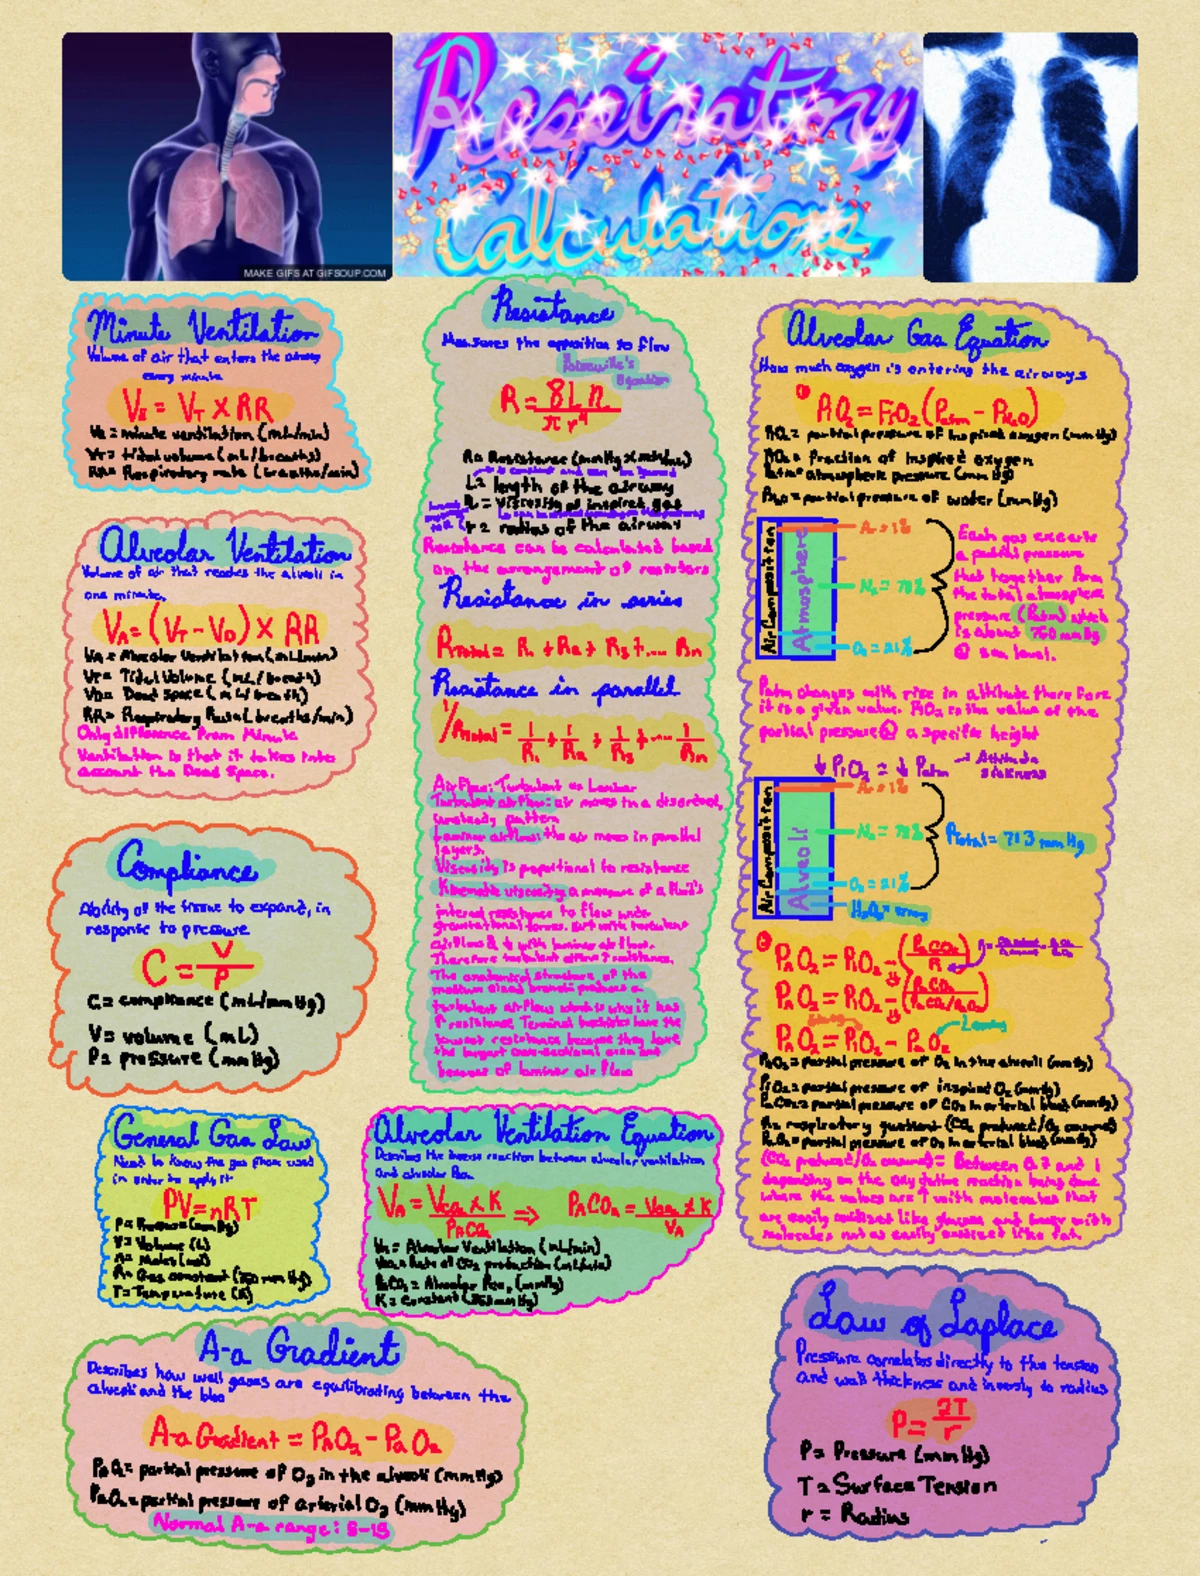 Respiratory
Calculations
MAKE GIFS AT GIFSOUP.COM
Minute Ventilation
Volume of air that enters the airway
every minute
VE = VT X RR
VE = minute ventilation (mL/min)
VT = tidal volume (mL/breaths)
RR = Respiratory rate (breaths/min)
Alveolar Ventilation
Volume of air that reaches the alveoli in
one minute.
VA = (VT - VD) X RR
VA = Alveolar Ventilation (mL/min)
VT = Tidal Volume (mL/breath)
VD = Dead Space (mL/breath)
RR = Respiratory Rate (breaths/min)
Only difference from Minute
Ventilation is that it takes into
account the Dead Space.
Compliance
Ability of the tissue to expand, in
response to pressure
C = V/P
C = compliance (mL/mmHg)
V = volume (mL)
P = pressure (mmHg)
General Gas Law
Need to know the gas phase used
in order to apply it
PV = nRT
P = Pressure (mmHg)
V = Volume (L)
n = Moles (mol)
R = Gas constant
T = Temperature (K)
A-a Gradient
Describes how well gases are equilibrating between the
alveoli and the bloo
A-a Gradient = PAO2 - PaO2
PAO2 = partial pressure of O2 in the alveoli (mmHg)
PaO2 = partial pressure of arterial O2 (mmHg)
Normal A-a range: 5-15
Resistance
Measures the opposition to flow
Equation
R = 8Lη/πr⁴
R = Resistance
L = length of the airway
η = Viscosity of inspired gas
r = radius of the airway
Resistance can be calculated based
on the arrangement of resistors
Resistance in series
RTotal = R1 + R2 + R3 + .... Rn
Resistance in parallel
1/RTotal = 1/R1 + 1/R2 + 1/R3 + .... 1/Rn
Air Flow: Turbulent vs Laminar
Turbulent airflow: air moves in a disordered,
unsteady pattern
Laminar airflow: the air moves in parallel
layers.
Viscosity is proportional to resistance
Kinematic viscosity a measure of a fluid's
internal resistance to flow under
gravitational forces. but with turbulent
airflow & ↓ with laminar air flow.
Therefore turbulent airflow ↑ resistance.
The anatomical structure of the
medium sized bronchi produces a
turbulent airflow which is why it has
↑ resistance. Terminal bronchioles have the
lowest resistance because they have
the largest cross-sectional area and
because of laminar air flow
Alveolar Ventilation Equation
Describes the inverse reaction between alveolar ventilation
and alveolar
VA = VCO2 x K / PACO2 ⇒ PACO2 = VCO2 x K / VA
VA = Alveolar Ventilation (mL/min)
VCO2 = Rate of CO2 production (mL/min)
PACO2 = Alveolar PCO2 (mmHg)
K = Constant
Alveolar Gas Equation
How much oxygen is entering the airways
① PIO2 = FIO2 (Patm - PH2O)
PIO2 = partial pressure of inspired oxygen (mmHg)
FIO2 = fraction of inspired oxygen
Patm = atmospheric pressure (mmHg)
PH2O = partial pressure of water (mmHg)
Air Composition
Atmosphere
Ar = 1%
N2 = 78%
O2 = 21%
Each gas exerts
a partial pressure
that together form
the total atmosphere
pressure (Patm) which
is about 760 mmHg
@ sea level.
Patm changes with rise in altitude therefore
it is a given value. PIO2 is the value of the
partial pressure @ a specific height
↓ PIO2 = ↓ Patm → Altitude
sickness
Air Composition
Alveoli
Ar = 1%
N2 = 78%
O2 = 21%
Ptotal = 713 mmHg
② PAO2 = PIO2 - (PaCO2/R)
PAO2 = PIO2 -
PAO2 = PIO2 - PaO2
Leaving
PAO2 = partial pressure of O2 in the alveoli (mmHg)
PIO2 = partial pressure of inspired O2 (mmHg)
PaCO2 = partial pressure of CO2 in arterial blood (mmHg)
R = respiratory quotient (CO2 produced/O2 consumed)
PaO2 = partial pressure of O2 in arterial blood (mmHg)
(CO2 produced/O2 consumed) = Between 0.7 and 1
depending on the oxydative reaction being done
where the values are ↑ with molecules that
are easily oxidized like glucose and lower with
molecules not as easily oxidized like fat.
Law of Laplace
Pressure correlates directly to the tension
and wall thickness and inversly to radius
P = 2T/r
P = Pressure (mmHg)
T = Surface Tension
r = Radius